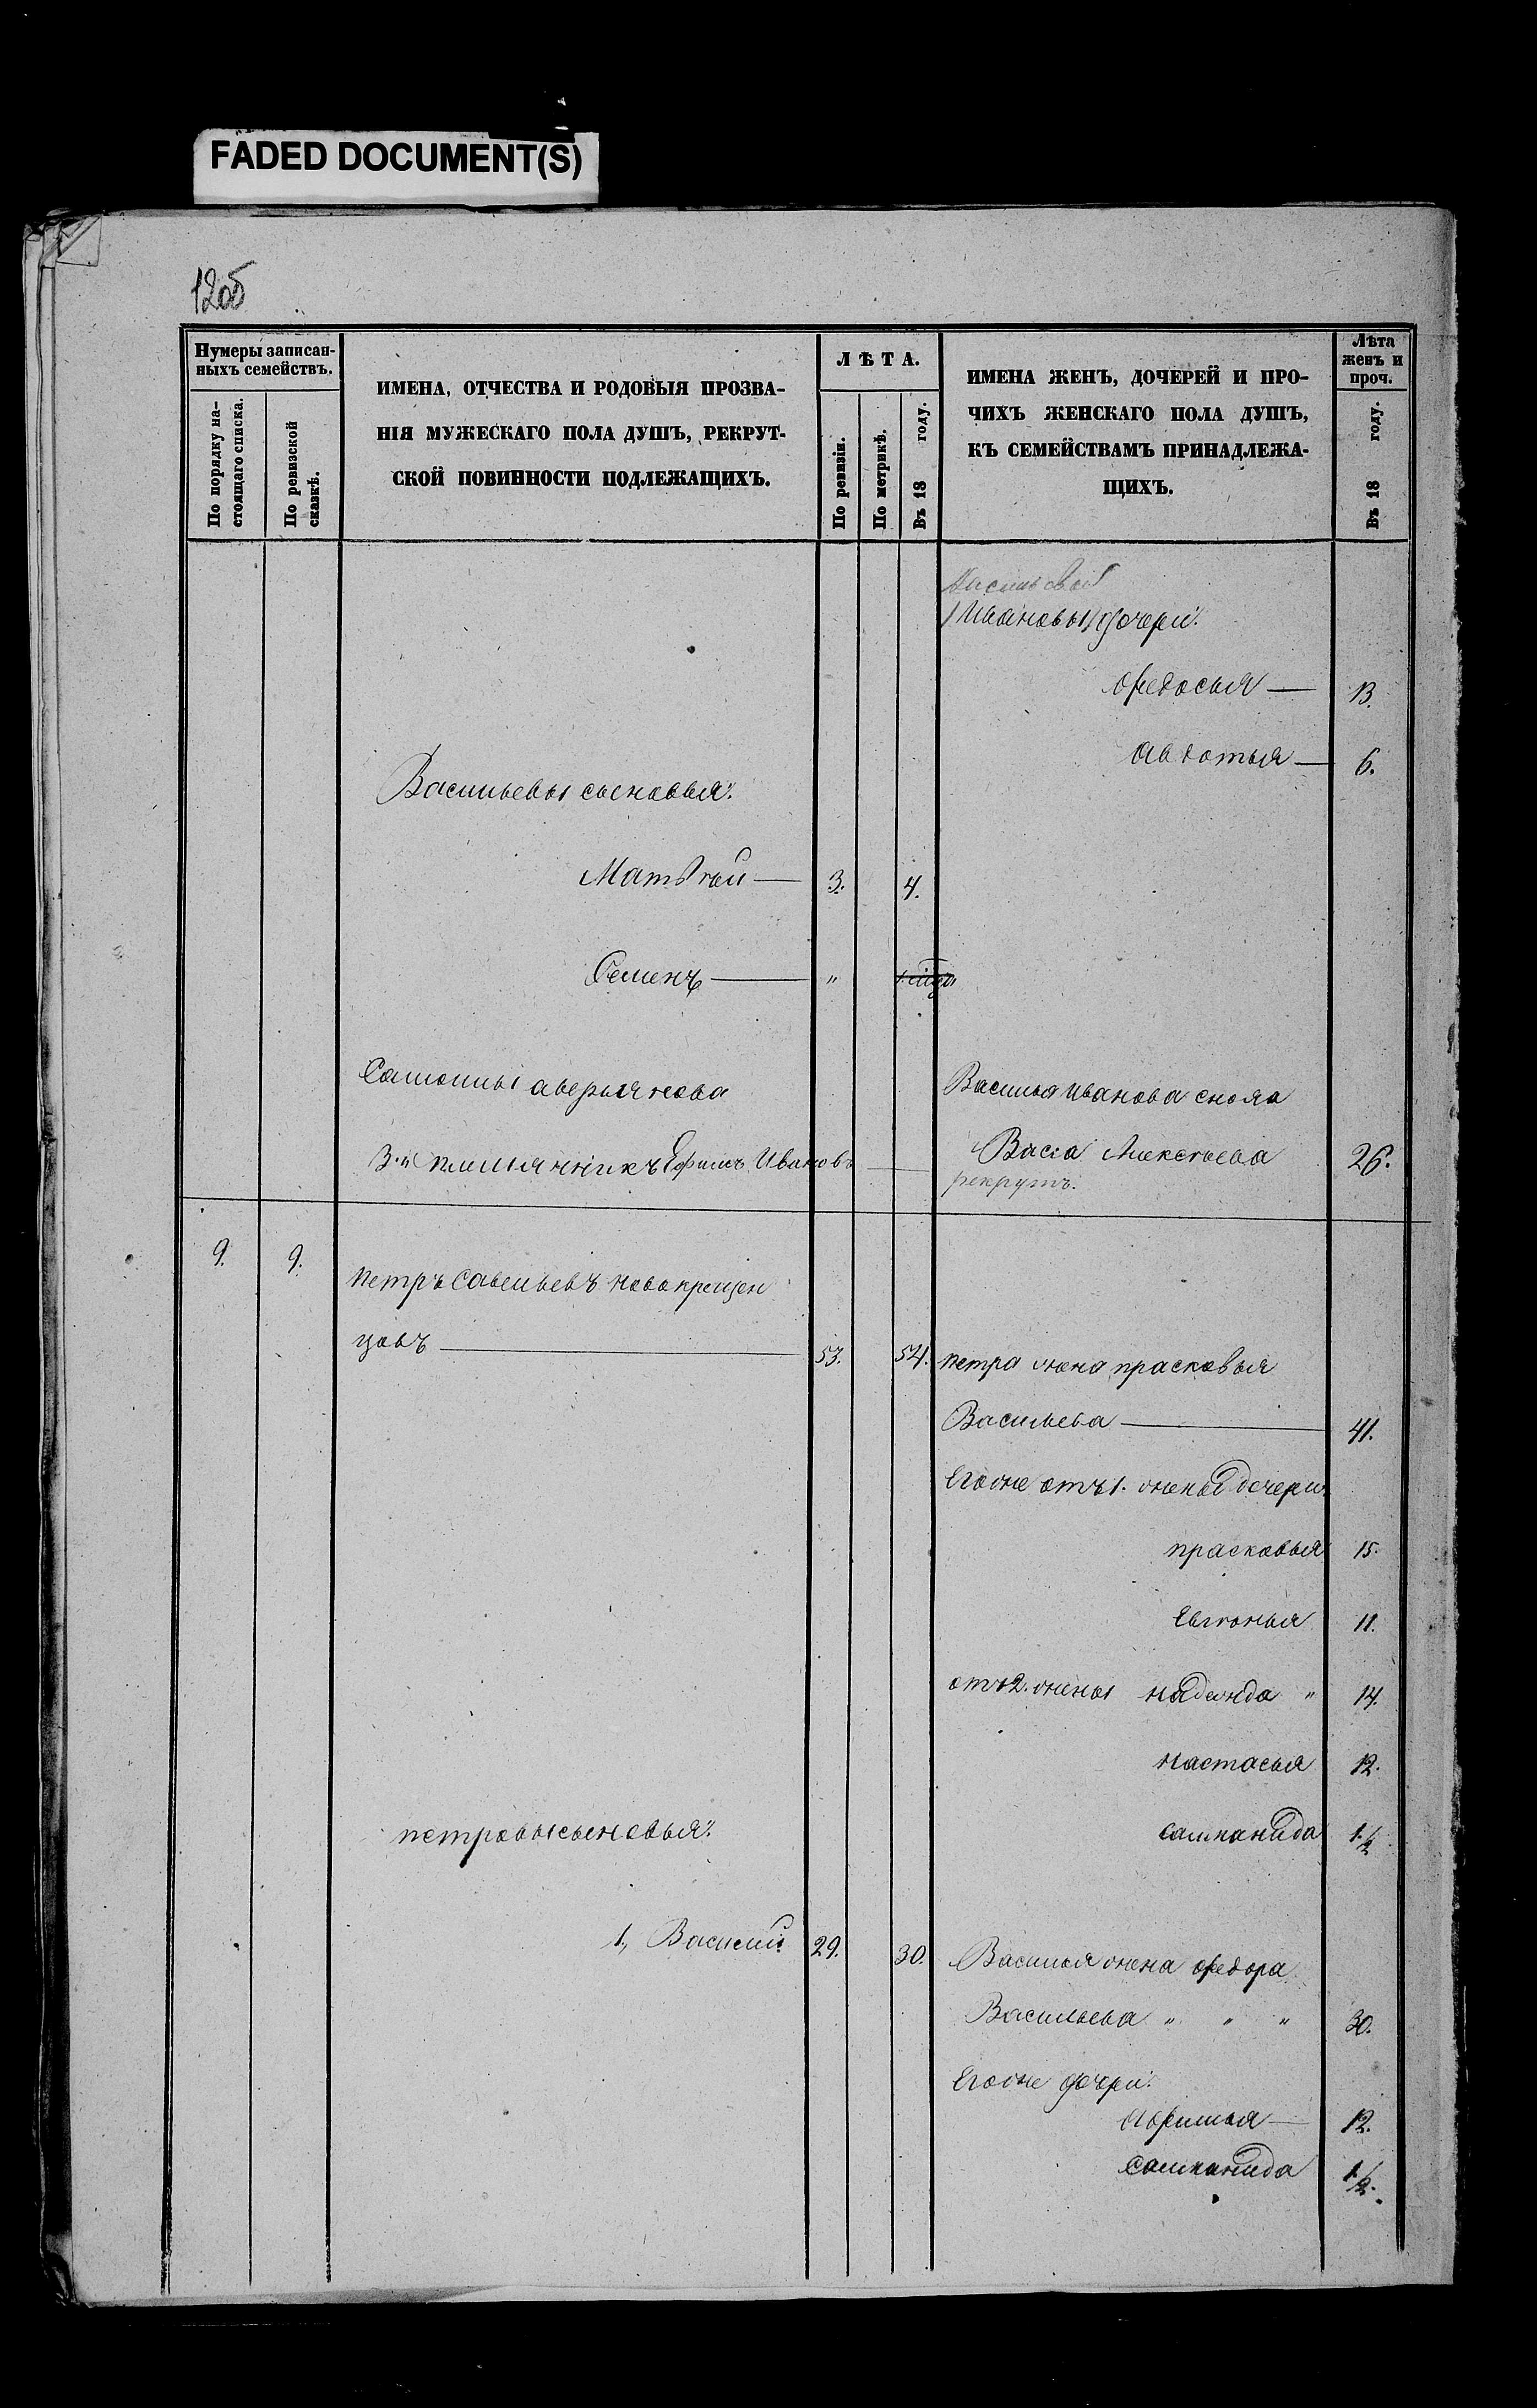 FADED DOCUMENT(S)
12об
Нумеры записан-
ныхъ семействъ.
По порядку на-
стоящаго списка.
По ревизской
сказкѣ.
ИМЕНА, ОТЧЕСТВА И РОДОВЫЯ ПРОЗВА-
НІЯ МУЖЕСКАГО ПОЛА ДУШЪ, РЕКРУТ-
СКОЙ ПОВИННОСТИ ПОДЛЕЖАЩИХЪ.
ЛѢТА.
По ревизіи.
По метрикѣ.
Въ 18 году.
ИМЕНА ЖЕНЪ, ДОЧЕРЕЙ И ПРО-
ЧИХЪ ЖЕНСКАГО ПОЛА ДУШЪ,
КЪ СЕМЕЙСТВАМЪ ПРИНАДЛЕЖА-
ЩИХЪ.
Лѣта
женъ и
проч.
Въ 18 году.
Ивановы дочери:
Федосья — 13.
Авдотья — 6.
Васильевы сыновья:
Матвѣй — 3. 4.
Семенъ — "
аверьянова
Василья Иванова сноха
3.й племянникъ Ефимъ Ивановъ —
Васса Алексѣева 26.
рекрутъ.
9. 9.
петръ Савельевъ новокрещен
цовъ — 53. 54.
петра жена прасковья
Васильева — 41.
Его же отъ 1. жены дочери:
прасковья 15.
Евгѣнья 11.
отъ 2. жены надежда " 14.
настасья 12.
петровы сыновья:
1/2
1, Василій 29. 30.
Василья жена федора
Васильева " " " 30.
Его же дочери:
12.
1/2.